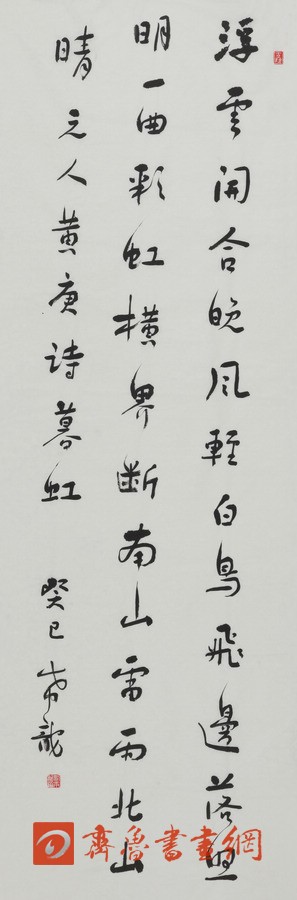 浮雲開合晚風輕白鳥飛邊落照
明一曲彩虹橫界斷南山雷雨北山
晴元人黄庚詩暮虹
癸巳 龍
齊魯書畫網